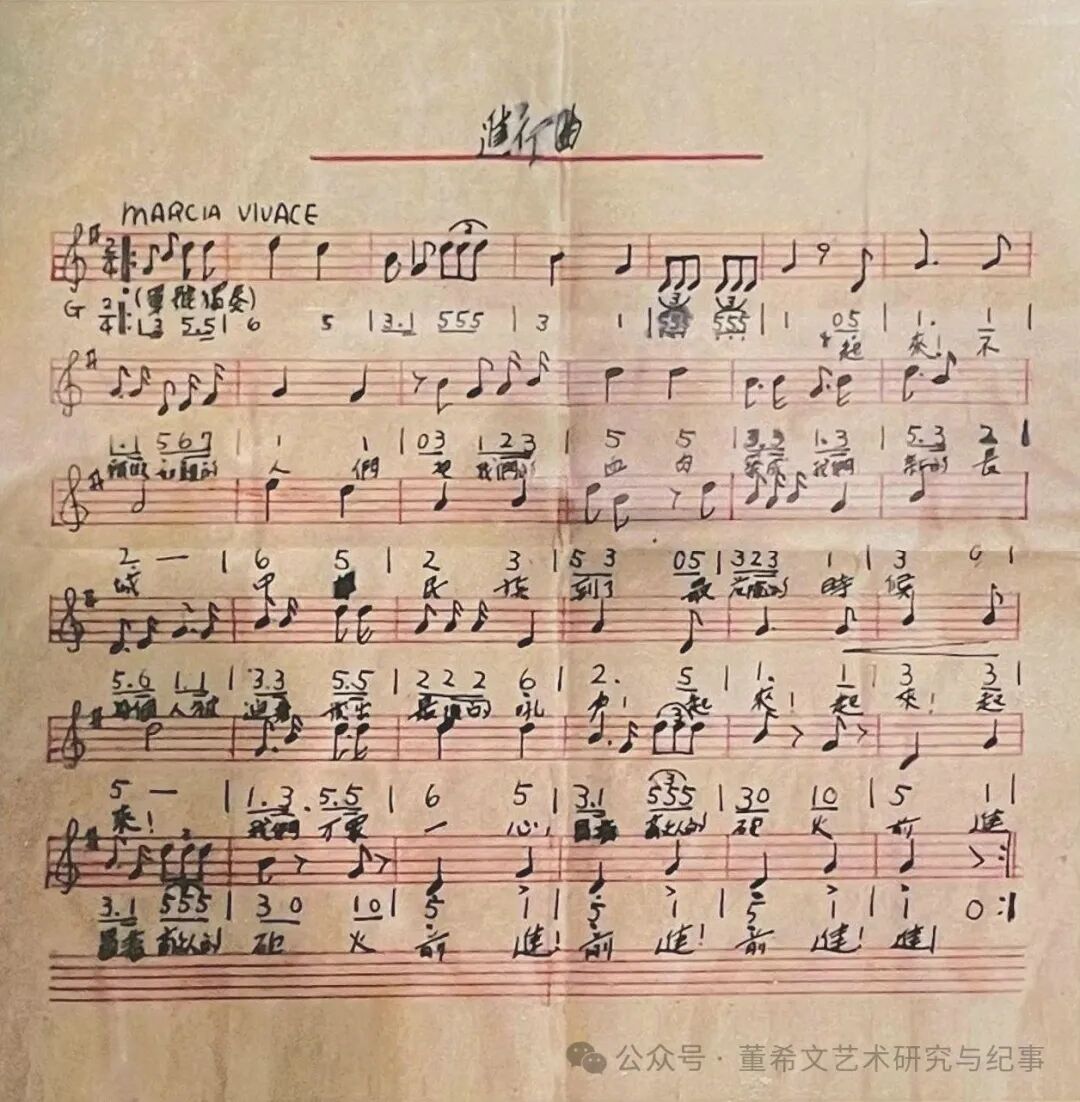 進行曲
MARCIA VIVACE
G 2/4 (軍號獨奏)
1.3 5.5 | 6 5 | 3.1 555 | 3 1 | 555 555 | 1 05 | 1. 1 |
起 來! 不
1.1 567 | 1 1 | 03 123 | 5 5 | 3.3 1.3 | 5.3 2
願做奴隸的 人 們 把 我們的 血 肉 築成 我們 新的 長
2 — | 6 5 | 2 3 | 53 05 | 323 1 | 3 0 |
城 中 民 族 到了 最 危險的 時 候
5.6 1.1 | 3.3 5.5 | 222 6 | 2. 5 | 1. 1 | 3 3 |
每個 人被 迫着 發出 最後的 吼 力! 起 來! 起 來! 起
5 — | 1.3 5.5 | 6 5 | 3.1 555 | 30 10 | 5 1 |
來! 我們 万眾 一 心, 冒着 敵人的 砲 火 前 進
3.1 555 | 30 10 | 5 1 | 5 1 | 5 1 | 1 0 :|
冒着 敵人的 砲 火 前 進! 前 進! 前 進! 進!
公众号 · 董希文艺术研究与纪事